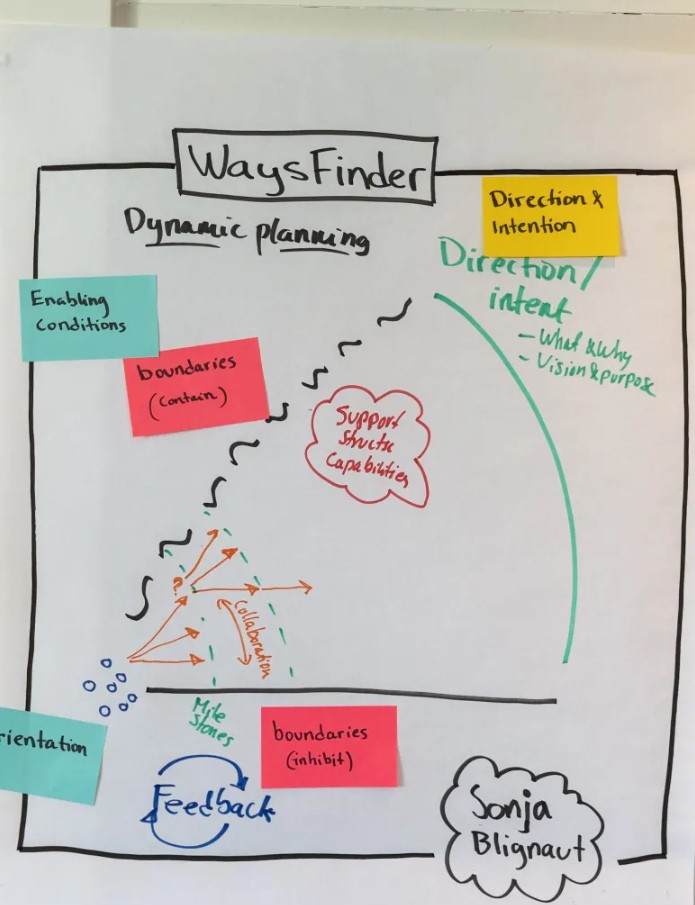 WaysFinder
Dynamic planning
Direction &
Intention
Direction/
intent
- What & Why
- Vision & purpose
Enabling
Conditions
boundaries
(contain)
Support
Structs
Capabilities
collaboration
Mile
Stones
rientation
boundaries
(inhibit)
Feedback
Sonja
Blignaut